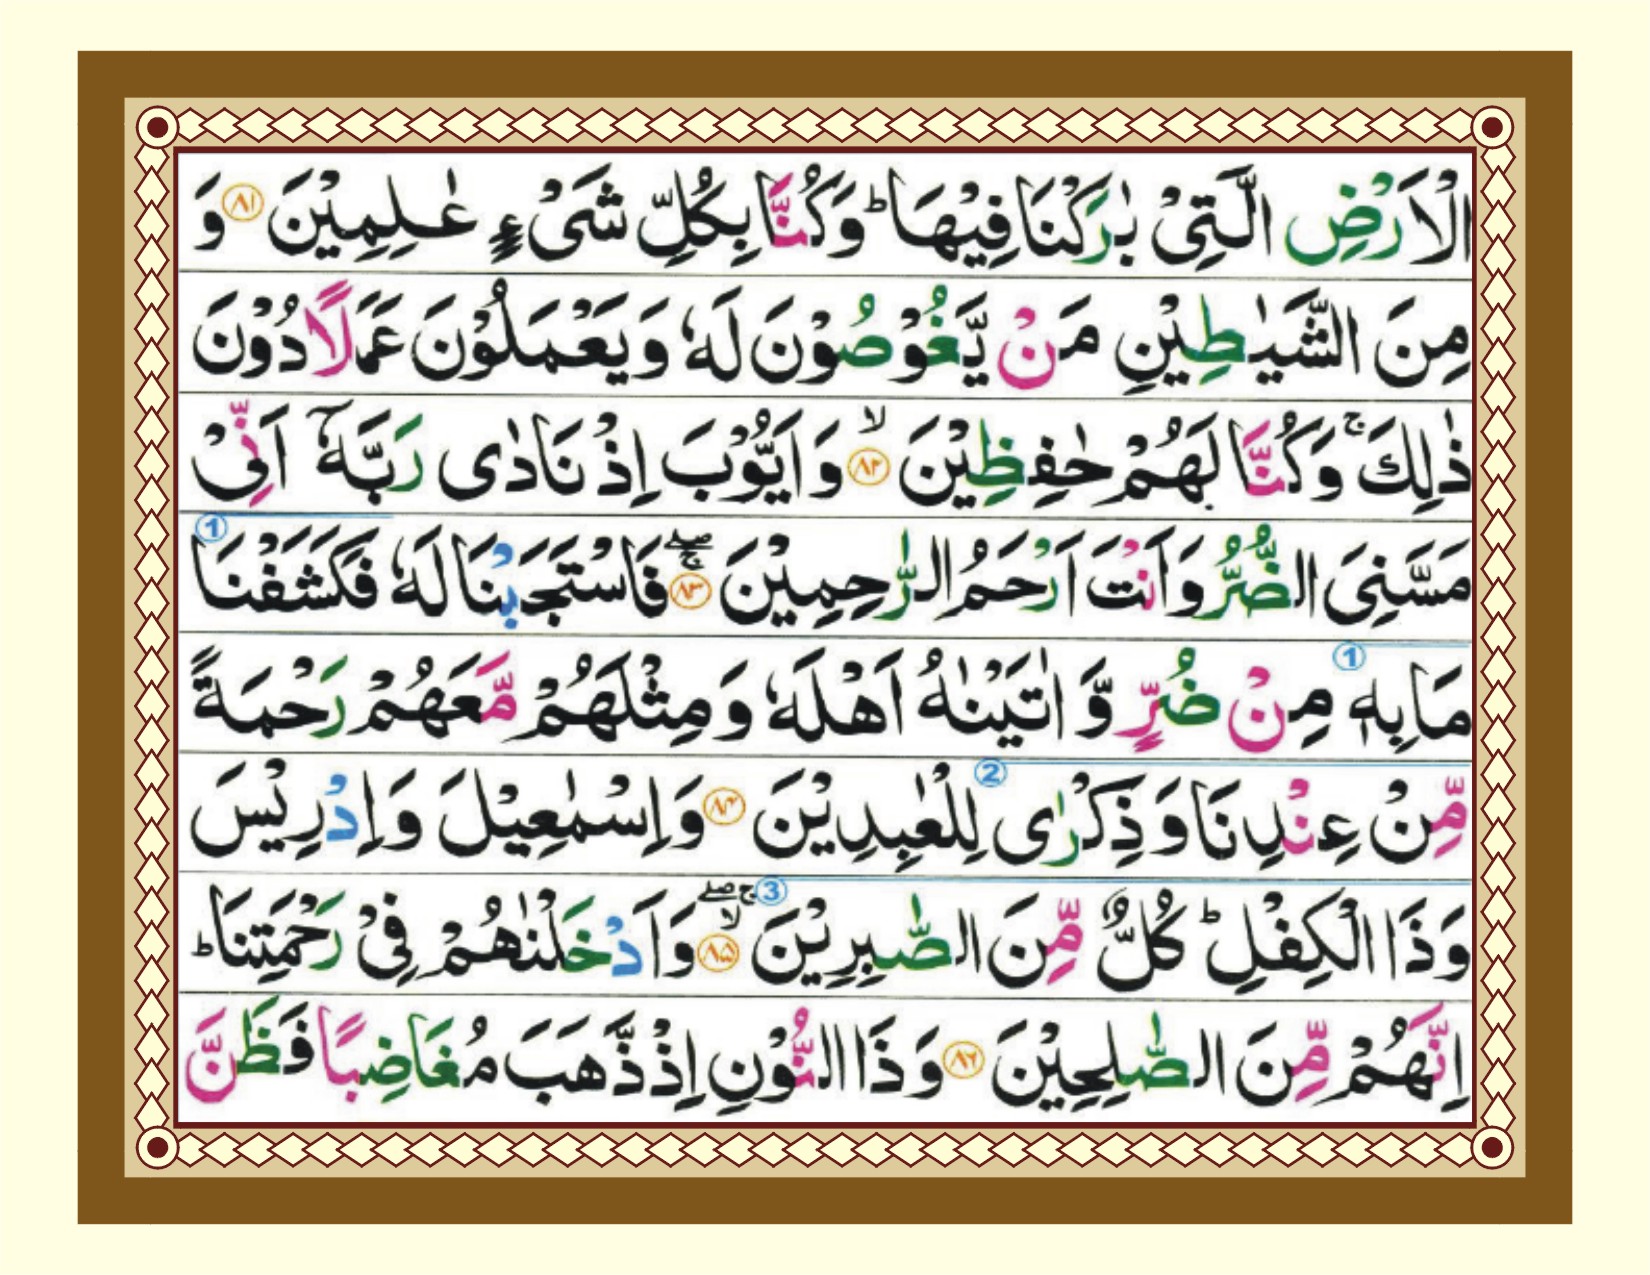 الْاَرْضِ الَّتِیْ بٰرَكْنَا فِیْهَا ؕ وَكُنَّا بِكُلِّ شَیْءٍ عٰلِمِیْنَ ۸۱ وَ
مِنَ الشَّیٰطِیْنِ مَنْ یَّغُوْصُوْنَ لَهٗ وَیَعْمَلُوْنَ عَمَلًا دُوْنَ
ذٰلِكَ ۚ وَكُنَّا لَهُمْ حٰفِظِیْنَ ۸۲ ۙ وَاَیُّوْبَ اِذْ نَادٰی رَبَّهٗۤ اَنِّیْ
① مَسَّنِیَ الضُّرُّ وَاَنْتَ اَرْحَمُ الرّٰحِمِیْنَ ۸۳ ۖۚ فَاسْتَجَبْنَا لَهٗ فَكَشَفْنَا
مَا بِهٖ ① مِنْ ضُرٍّ وَّاٰتَیْنٰهُ اَهْلَهٗ وَمِثْلَهُمْ مَّعَهُمْ رَحْمَةً
مِّنْ عِنْدِنَا وَذِكْرٰی ② لِلْعٰبِدِیْنَ ۸۴ وَاِسْمٰعِیْلَ وَاِدْرِیْسَ
وَذَا الْكِفْلِ ؕ كُلٌّ مِّنَ الصّٰبِرِیْنَ ③ ۸۵ ۙ ۚۖ وَاَدْخَلْنٰهُمْ فِیْ رَحْمَتِنَا ؕ
اِنَّهُمْ مِّنَ الصّٰلِحِیْنَ ۸۶ وَذَا النُّوْنِ اِذْ ذَّهَبَ مُغَاضِبًا فَظَنَّ